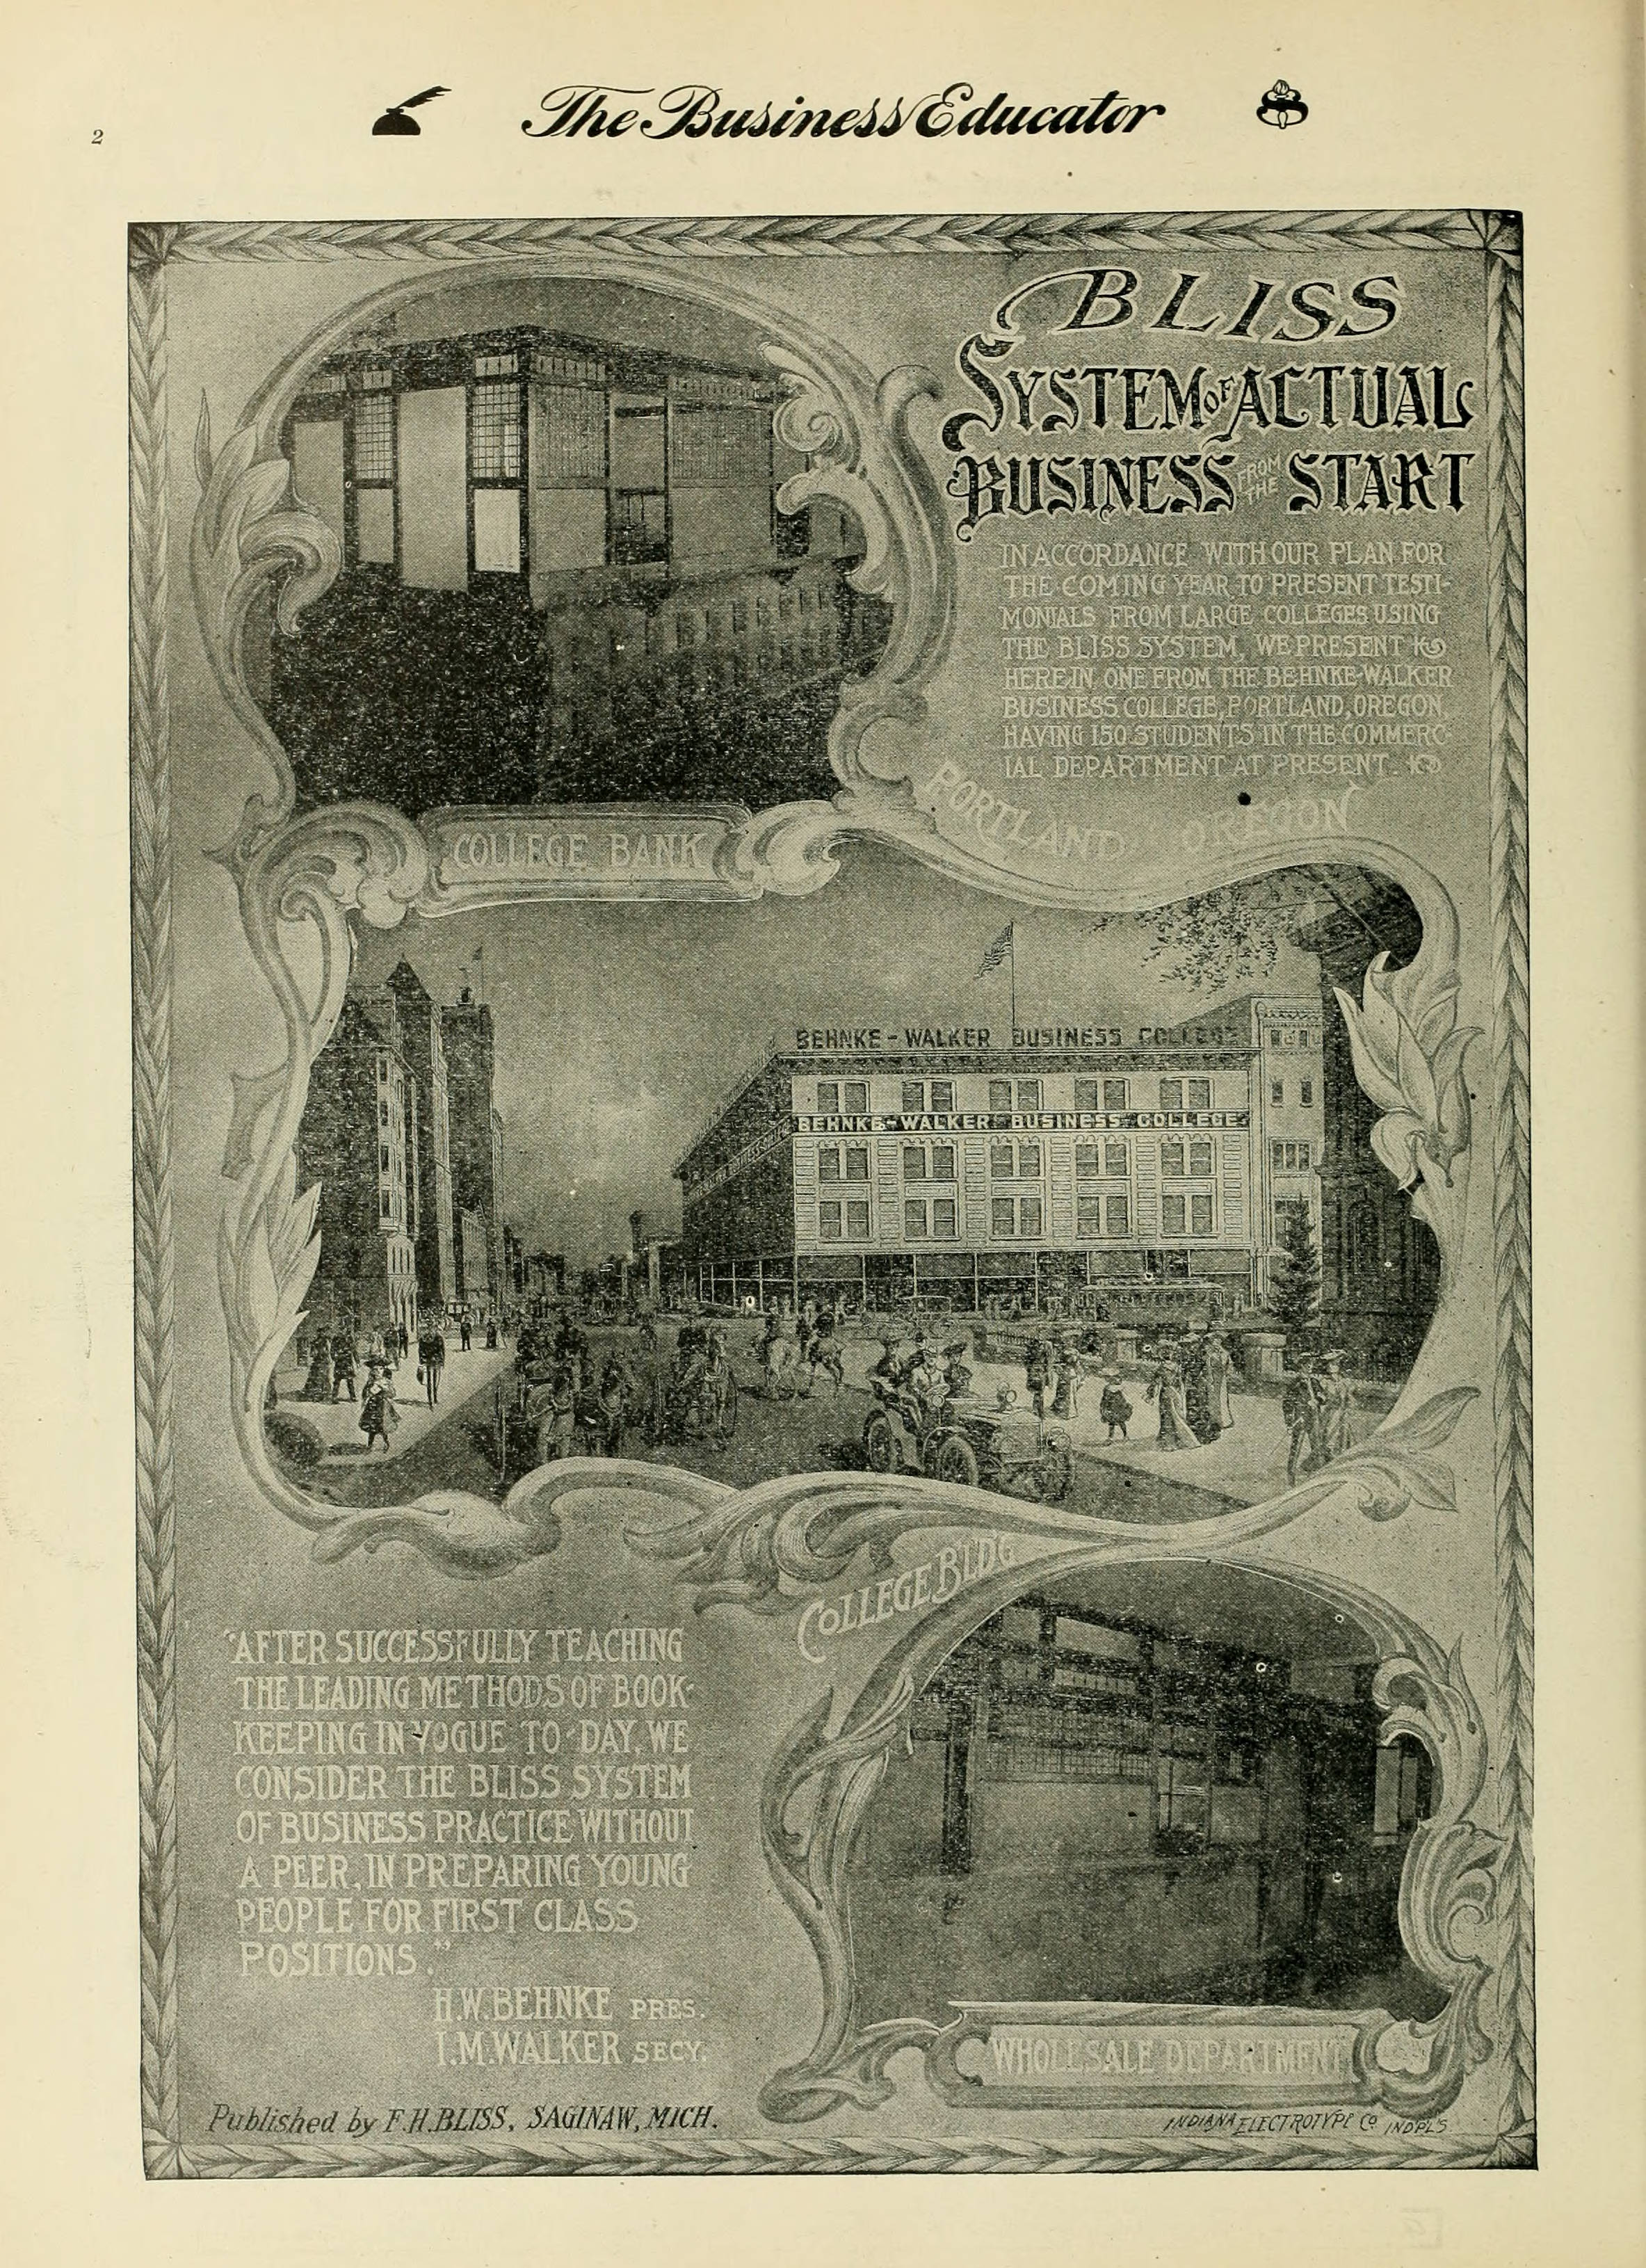 2
The Business Educator
BLISS
SYSTEM OF ACTUAL
BUSINESS FROM THE START
IN ACCORDANCE WITH OUR PLAN FOR
THE COMING YEAR TO PRESENT TESTI-
MONIALS FROM LARGE COLLEGES USING
THE BLISS SYSTEM, WE PRESENT
HEREIN ONE FROM THE BEHNKE-WALKER
BUSINESS COLLEGE, PORTLAND, OREGON,
HAVING 150 STUDENTS IN THE COMMERC-
IAL DEPARTMENT AT PRESENT.
PORTLAND, OREGON
COLLEGE BANK
BEHNKE-WALKER BUSINESS COLLEGE
BEHNKE-WALKER BUSINESS COLLEGE
COLLEGE BLDG
"AFTER SUCCESSFULLY TEACHING
THE LEADING METHODS OF BOOK-
KEEPING IN VOGUE TO-DAY, WE
CONSIDER THE BLISS SYSTEM
OF BUSINESS PRACTICE WITHOUT
A PEER, IN PREPARING YOUNG
PEOPLE FOR FIRST CLASS
POSITIONS."
H.W. BEHNKE PRES.
I.M. WALKER SECY.
WHOLESALE DEPARTMENT
Published by F.H. BLISS, SAGINAW, MICH.
INDIANA ELECTROTYPE CO. INDPL'S